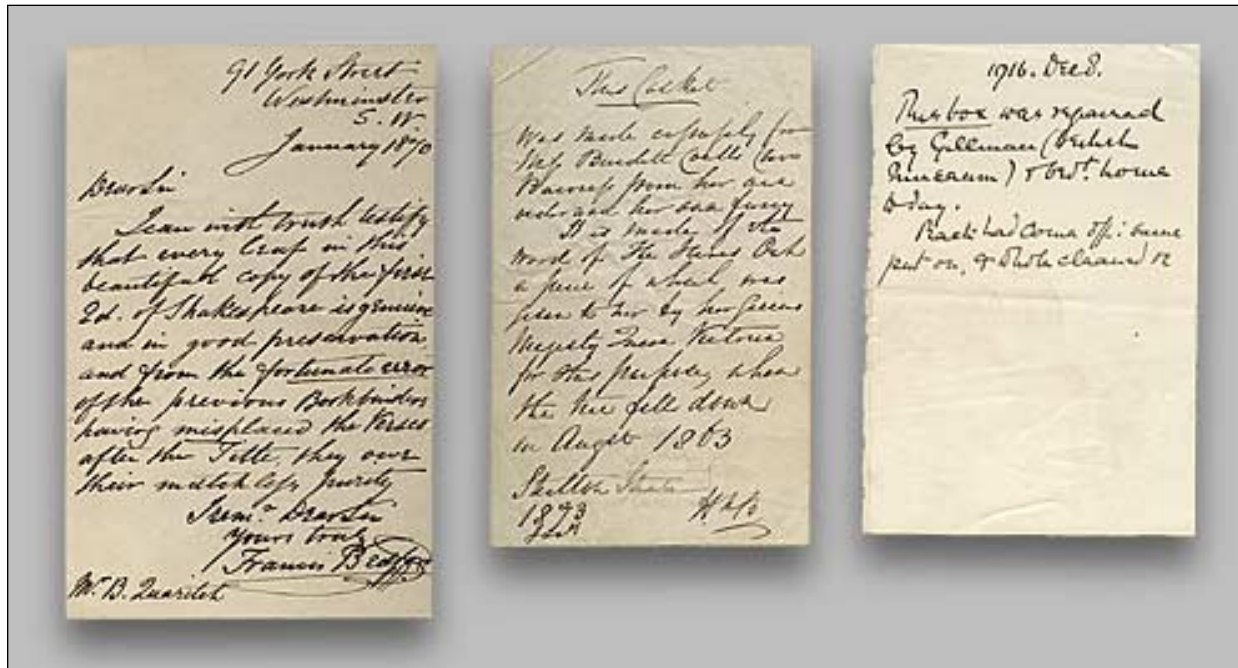 91 York Street
Westminster
S. W
January 1870
Dear Sir
I can with truth testify
that every leaf in this
beautiful copy of the first
Ed. of Shakespeare is genuine
and in good preservation
and from the fortunate error
of the previous Bookbinders
having misplaced the Verses
after the Title they owe
their matchless purity
I rem. Dear Sir
yours truly
Francis Bedford
Mr. B. Quaritch
This Casket
Was made expressly for
Miss Burdett Coutts (now
Baroness from her and
under her own fancy
It is made of the
wood of the Herne's Oak
a piece of which was
given to her by her Gracious
Majesty Queen Victoria
for this purpose, when
the tree fell down
in Augst 1863
1893
1916. Dec 8.
This box was repaired
by Gillman (British
Museum) & brot. home
today.
Back had come off: same
put on, & whole cleaned